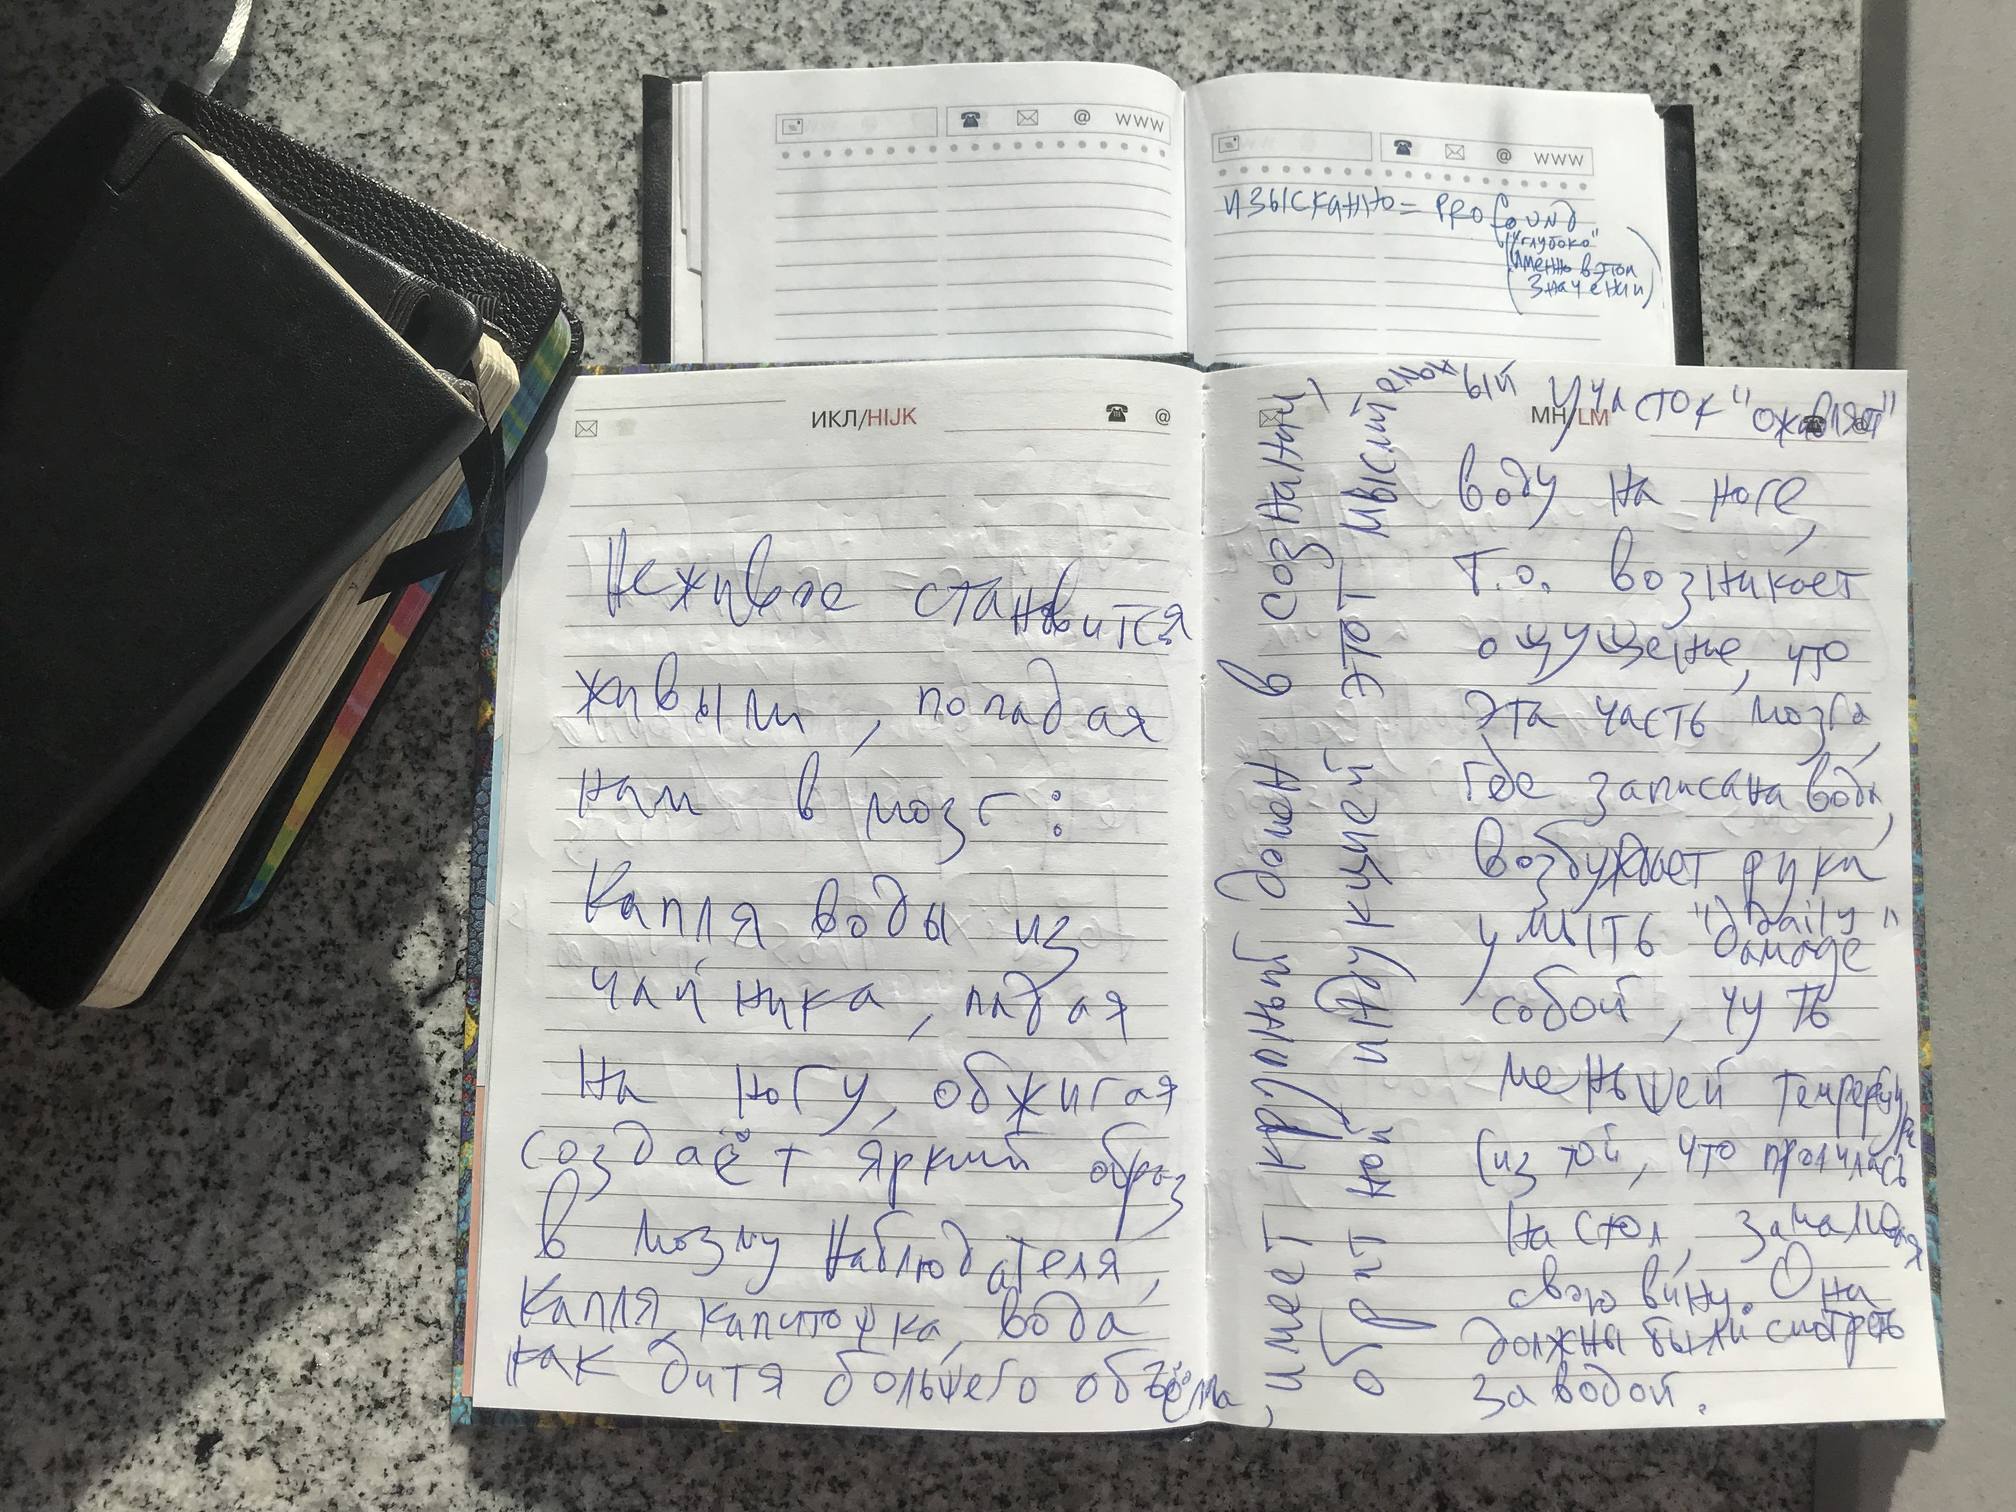 @ WWW
@ WWW
изысканно = profound
"глубоко"
именно в этом
значении)
ИКЛ/HIJK
@
Неживое становится
живым, попадая
нам в мозг:
Капля воды из
чайника, падая
на ногу, обжигая
создаёт яркий образ
в мозгу наблюдателя,
капля, капитошка, вода
как дитя большего объёма,
имеет крупный домен в сознании,
обратной индукцией этот мыслительн
МН/LM
ый участок "оживляет"
воду на ноге,
т.о. возникает
ощущение, что
эта часть мозга,
где записана вода,
возбуждает руки
умыть "daily
damage"
собой, чуть
меньшей температуры
(из той, что пролилась
на стол, замаливая
свою вину. Она
должны были смотреть
за водой.